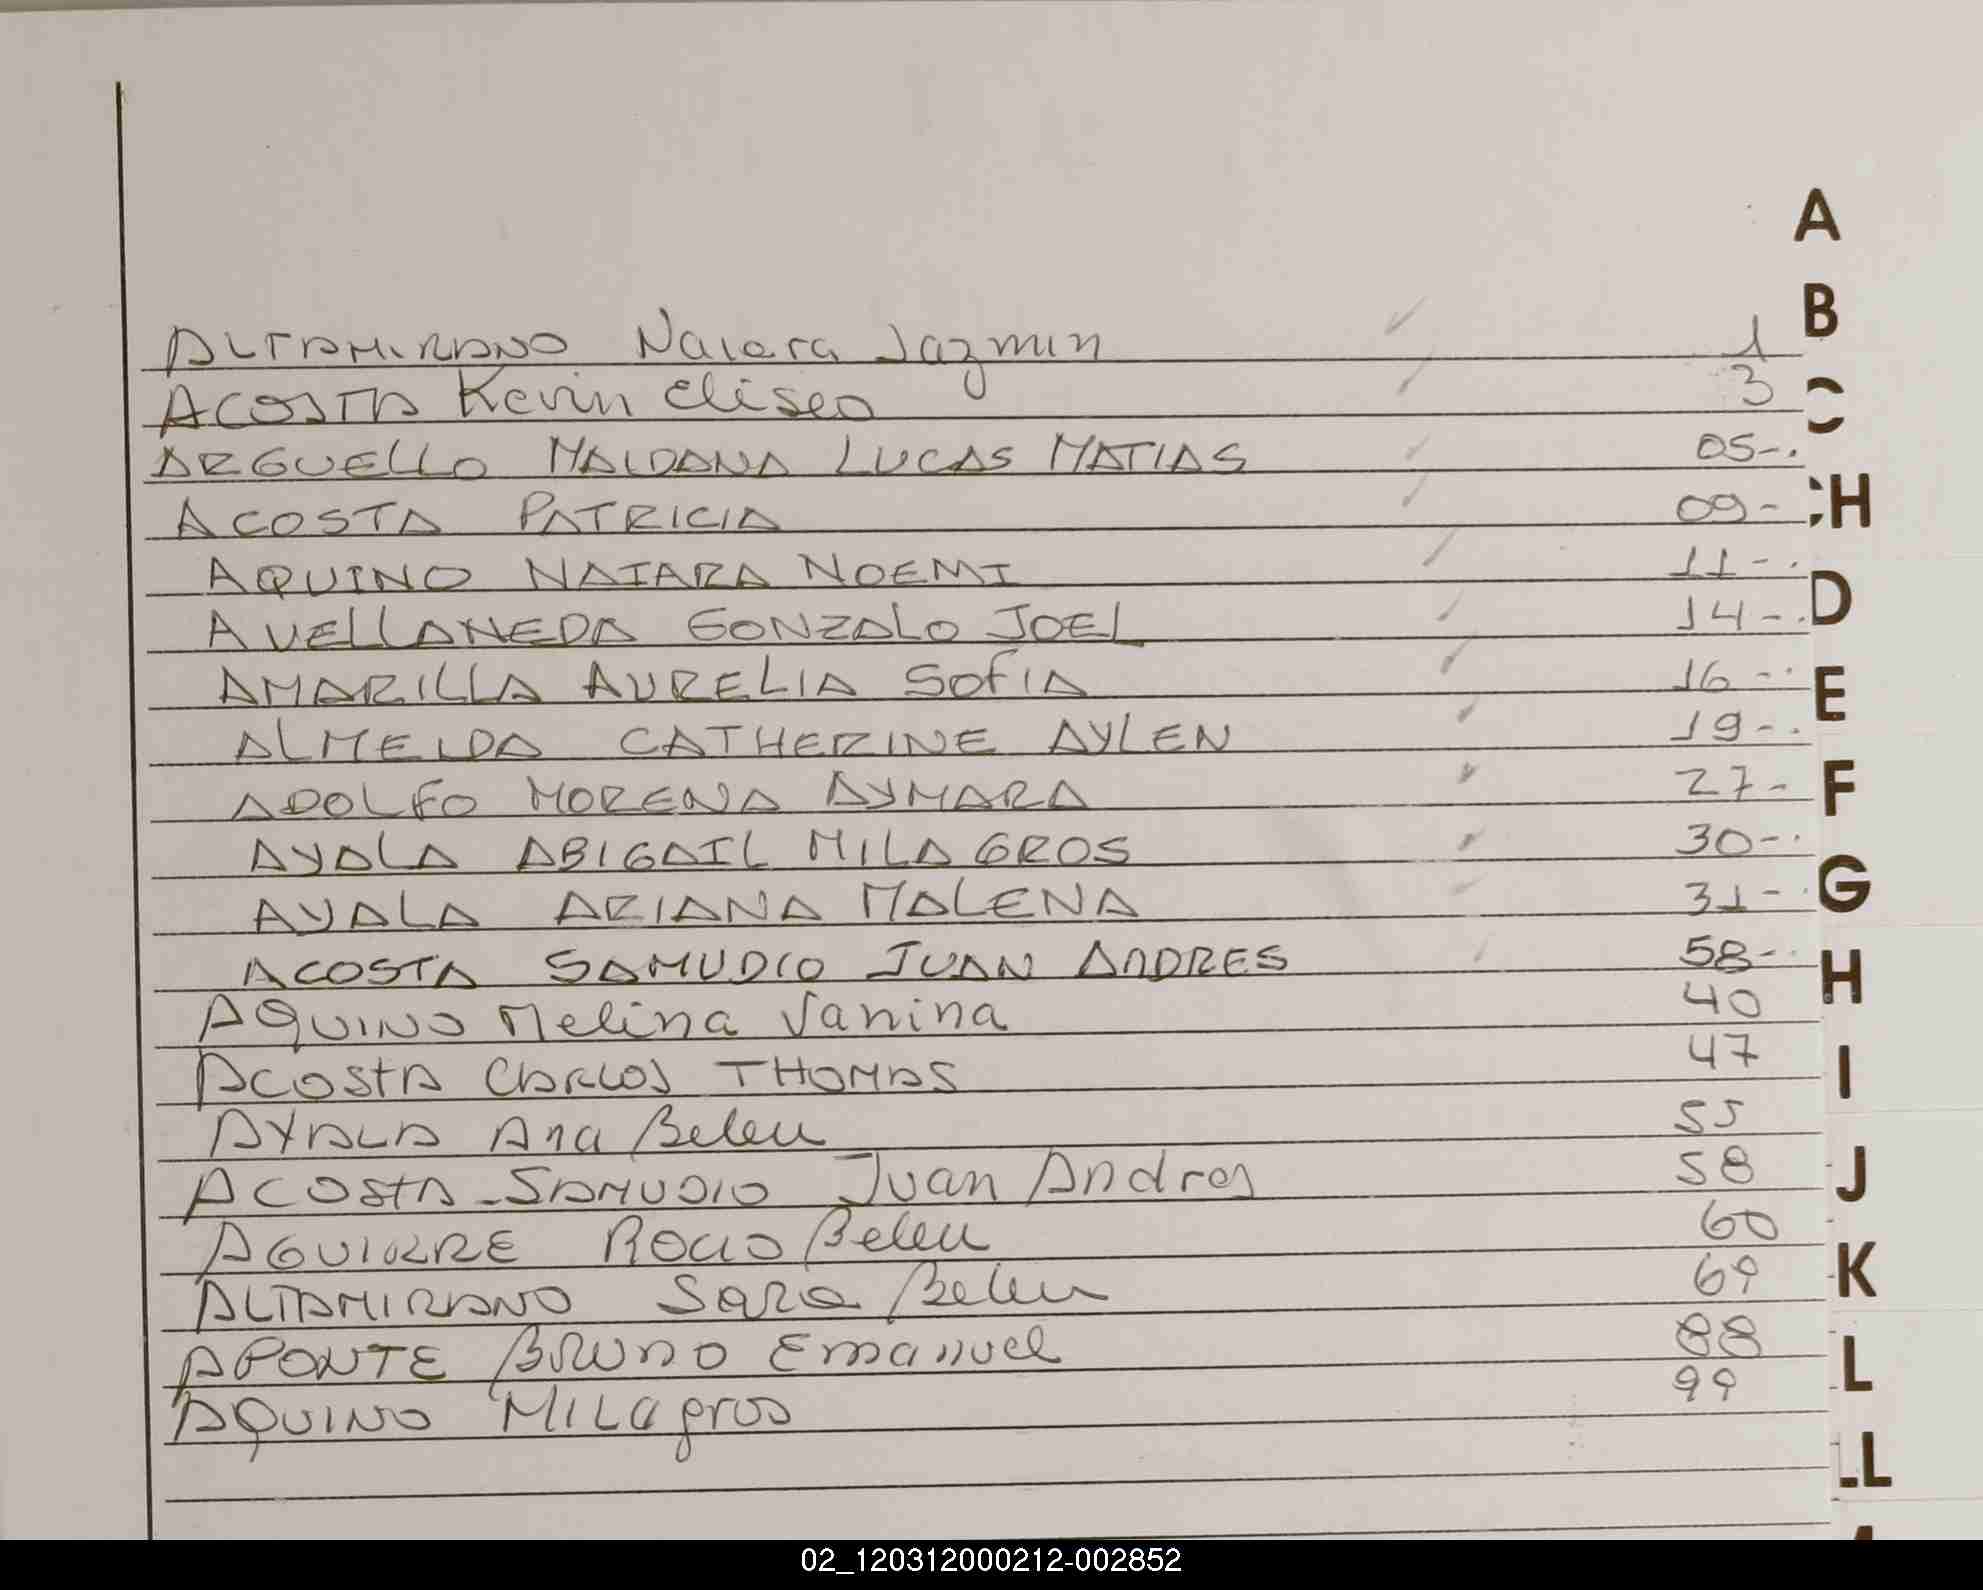 A
B
ALTAMIRANO Naiara Jazmin 1
ACOSTA Kevin Eliseo 3
ARGUELLO MALDANA LUCAS MATIAS 05-.
ACOSTA PATRICIA 09- CH
AQUINO NAIARA NOEMI 11-.
AVELLANEDA GONZALO JOEL 14-. D
AMARILLA AURELIA SOFIA 16-. E
ALMEIDA CATHERINE AYLEN 19-.
ADOLFO MORENA AYMARA 27- F
AYALA ABIGAIL MILAGROS 30-.
AYALA ARIANA MALENA 31-. G
ACOSTA SAMUDIO JUAN ANDRES 58-. H
AQUINO Melina Vanina 40
ACOSTA CARLOS THOMAS 47 I
AYALA Ana Belen 55
ACOSTA SAMUDIO Juan Andres 58 J
AGUIRRE ROCIO Belen 60
ALTAMIRANO Sara Belen 69 K
APONTE BRUNO Emanuel 88 L
AQUINO MILAgros 99
LL
02_120312000212-002852